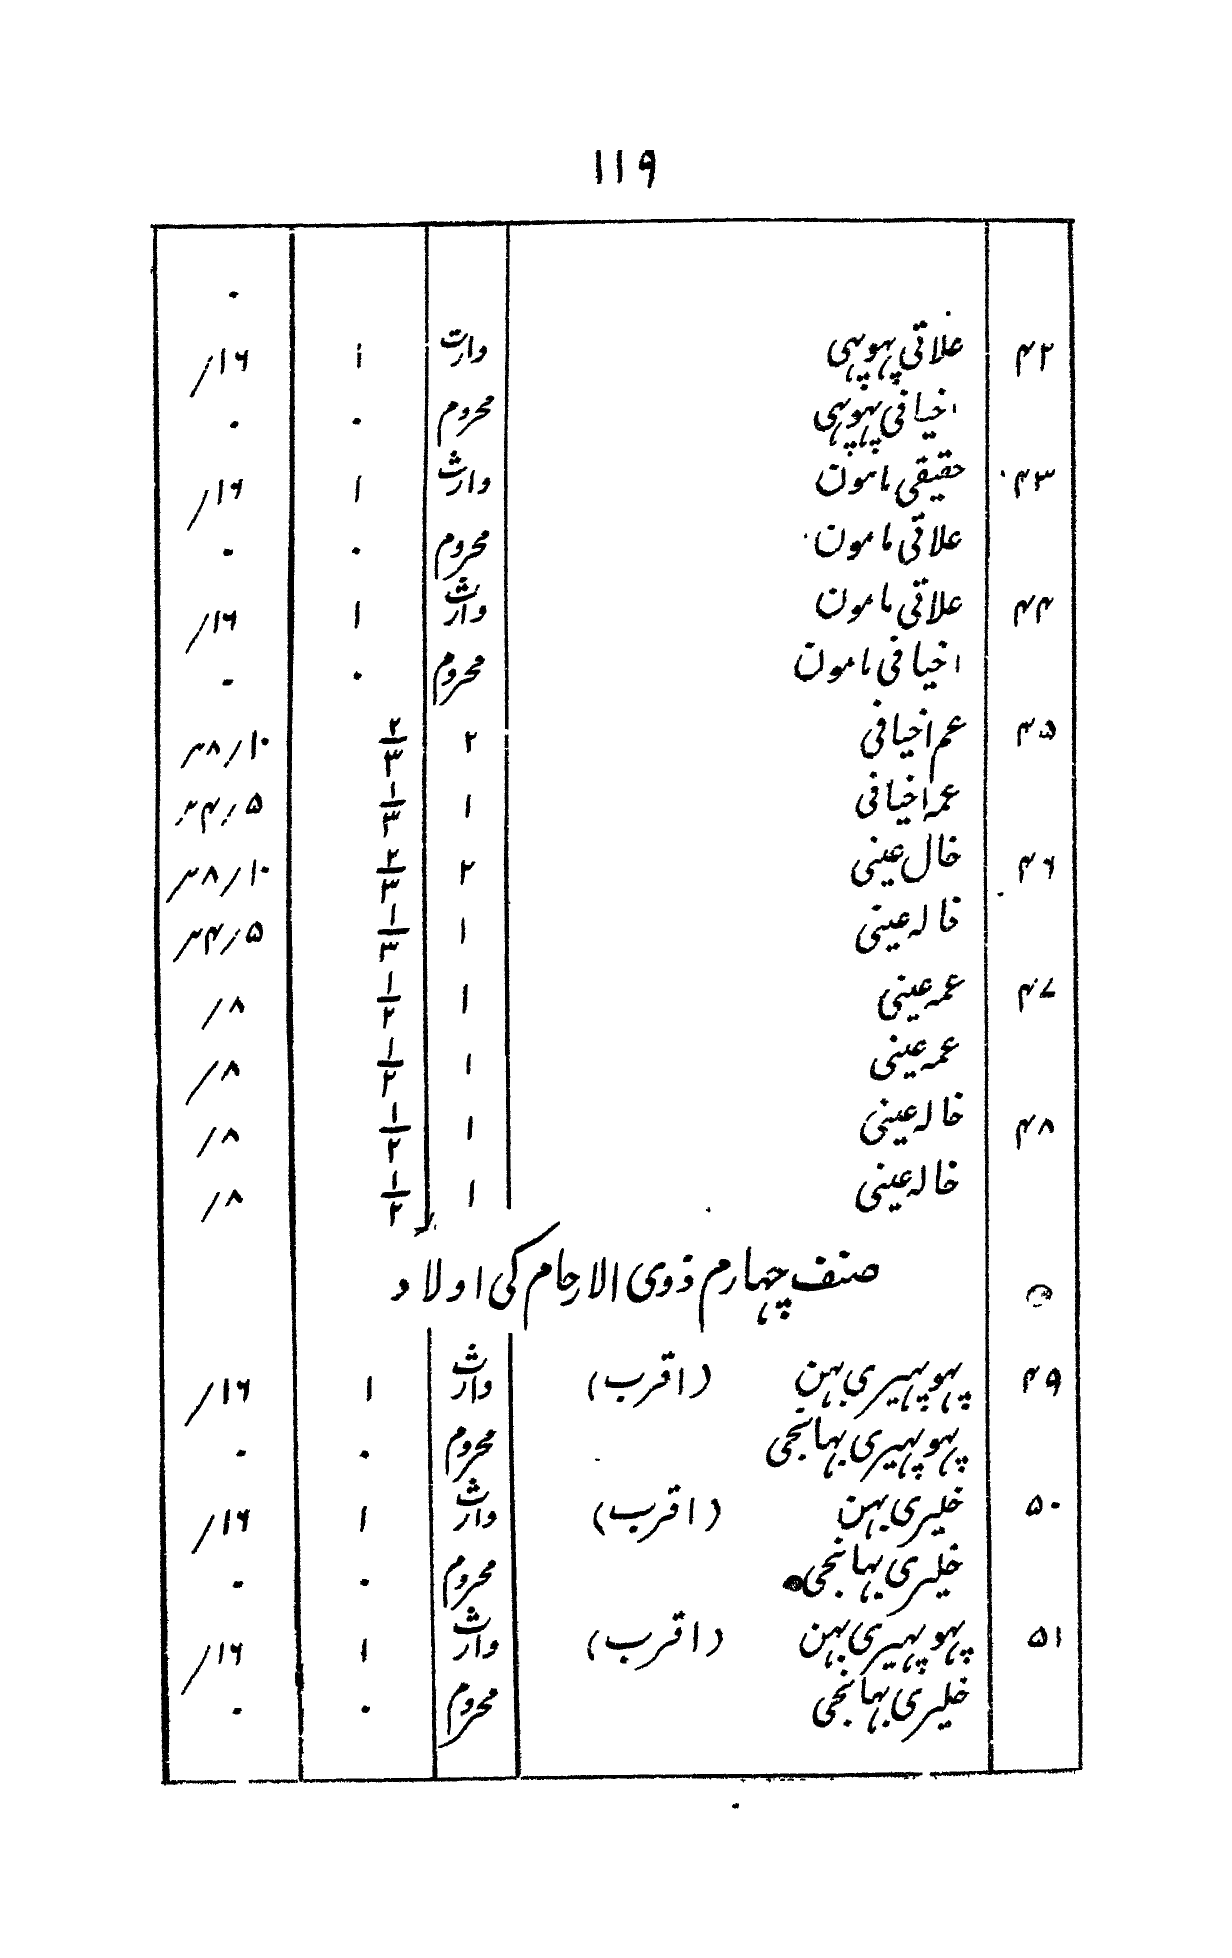 ۱۱۹
۰
۴۲ علاتی پھوپھی وارث ۱ ۱۶/
اخیافی پھوپھی محروم ۰ ۰
۴۳ حقیقی مامون وارث ۱ ۱۶/
علاتی مامون محروم ۰ ۰
۴۴ علاتی مامون وارث ۱ ۱۶/
اخیافی مامون محروم ۰ ۰
۴۵ عم اخیافی ۲ ۲/۳ ۱۰/۸
عمہ اخیافی ۱ ۱/۳ ۵/۴
۴۶ خال عینی ۲ ۲/۳ ۱۰/۸
خالہ عینی ۱ ۱/۳ ۵/۴
۴۷ عمہ عینی ۱ ۱/۲ ۸/
عمہ عینی ۱ ۱/۲ ۸/
۴۸ خالہ عینی ۱ ۱/۲ ۸/
خالہ عینی ۱ ۱/۲ ۸/
صنف چہارم ذوی الارحام کی اولاد
۴۹ پھوپھیری بہن (اقرب) وارث ۱ ۱۶/
پھوپھیری بھانجی محروم ۰ ۰
۵۰ خلیری بہن (اقرب) وارث ۱ ۱۶/
خلیری بھانجی محروم ۰ ۰
۵۱ پھوپھیری بہن (اقرب) وارث ۱ ۱۶/
خلیری بھانجی محروم ۰ ۰